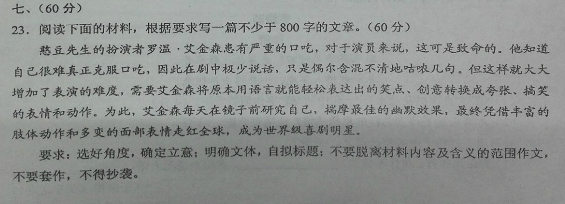 七、(60 分)
23. 阅读下面的材料，根据要求写一篇不少于 800 字的文章。(60 分)
憨豆先生的扮演者罗温·艾金森患有严重的口吃，对于演员来说，这可是致命的。他知道
自己很难真正克服口吃，因此在剧中极少说话，只是偶尔含混不清地咕哝几句。但这样就大大
增加了表演的难度，需要艾金森将原本用语言就能轻松表达出的笑点、创意转换成夸张、搞笑
的表情和动作。为此，艾金森每天在镜子前研究自己，揣摩最佳的幽默效果，最终凭借丰富的
肢体动作和多变的面部表情走红全球，成为世界级喜剧明星。
要求：选好角度，确定立意；明确文体，自拟标题；不要脱离材料内容及含义的范围作文，
不要套作，不得抄袭。